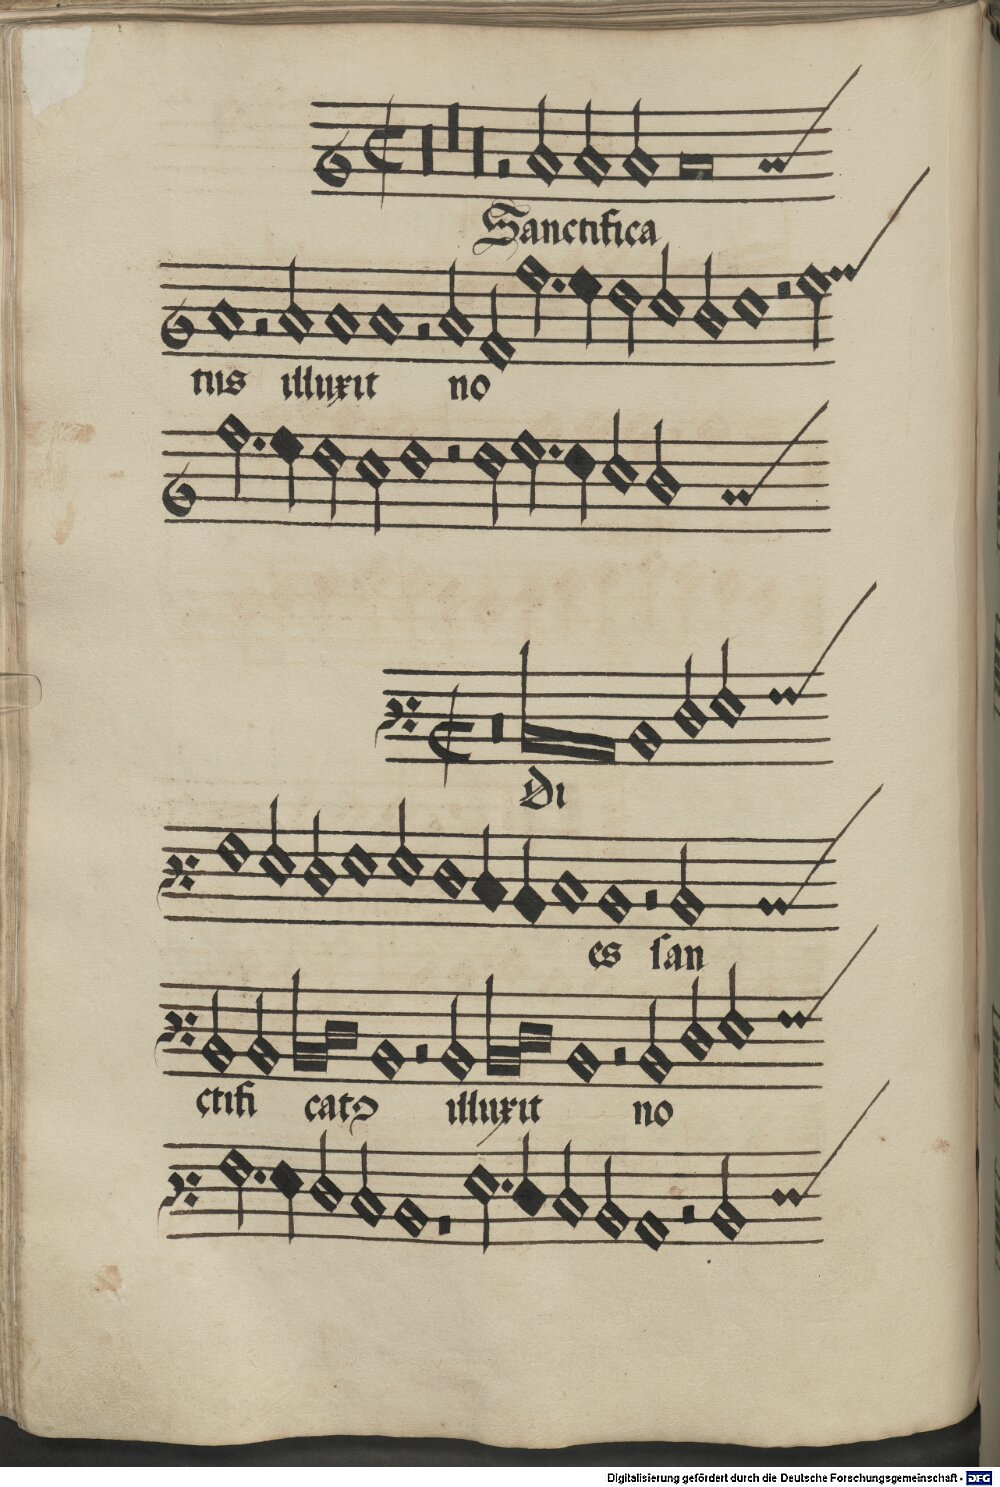 Sanctifica
tus illuxit no
Di
es san
ctifi catꝰ illuxit no
Digitalisierung gefördert durch die Deutsche Forschungsgemeinschaft - DFG